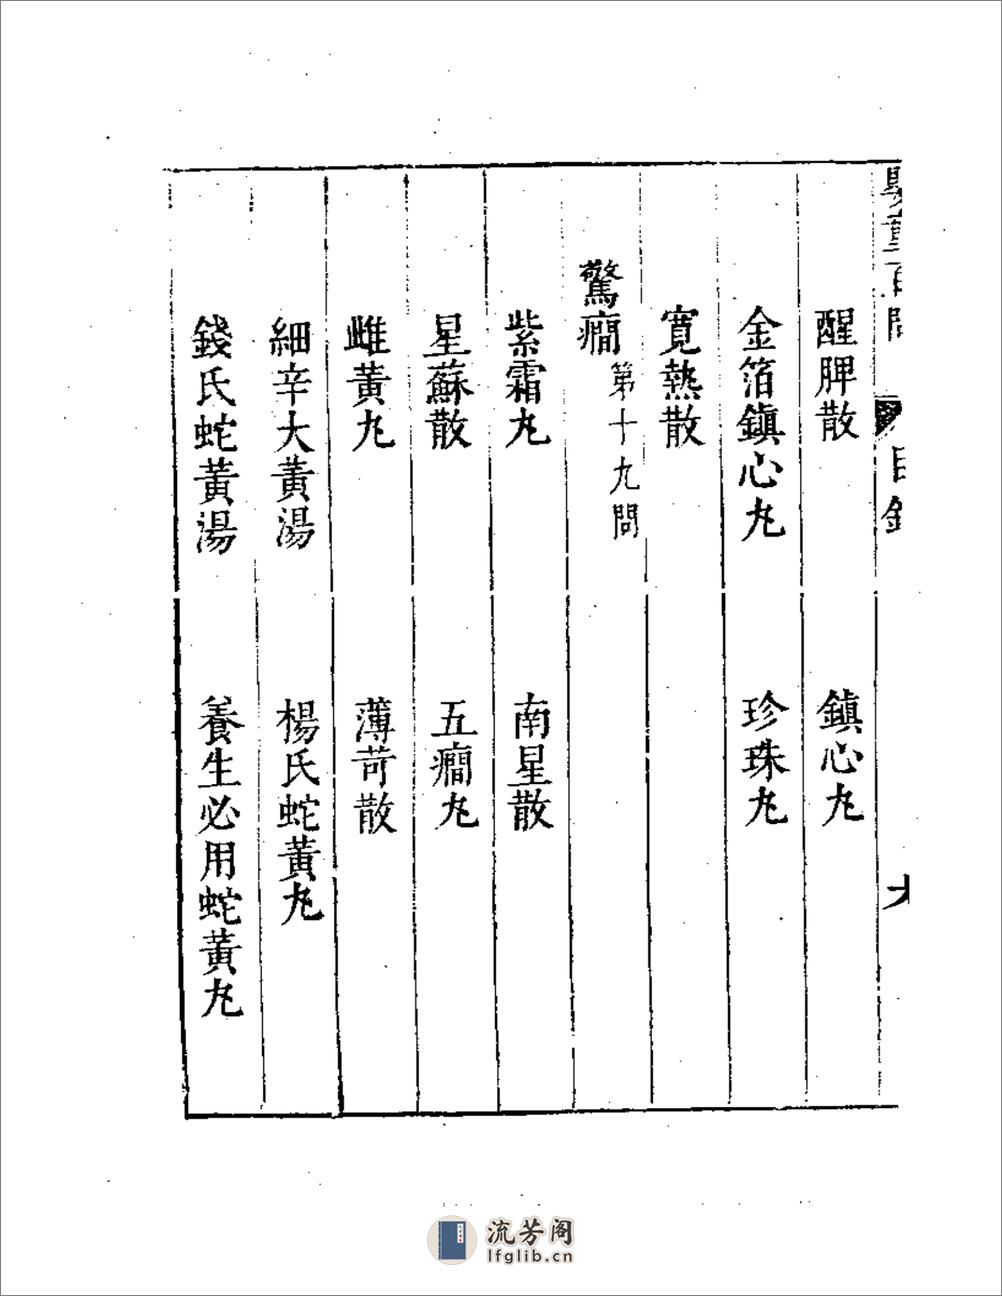 醒脾散　鎮心丸
金箔鎮心丸　珍珠丸
寛熱散
驚癇第十九問
紫霜丸　南星散
星蘇散　五癇丸
雌黃丸　薄苛散
細辛大黃湯　楊氏蛇黃丸
錢氏蛇黃湯　養生必用蛇黃丸
流芳阁
lfglib.cn